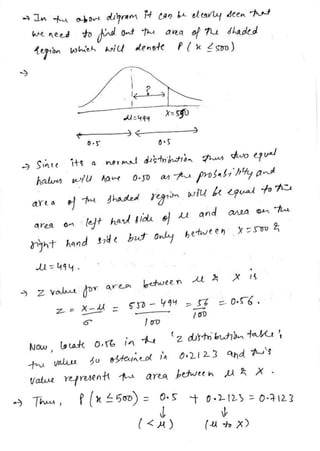 → In the above digram it can be clearly seen that
we need to find out the area of the shaded
region which will denote P ( x ≤ 500)
→
?
μ=494 X=550
0.5 0.5
→ Since its a normal distribution thus two equal
halves will have 0.50 as the probability and
area of the shaded region will be equal to the
area on left hand side of μ and area on the
right hand side but only between x = 500 &
μ = 494.
→ Z value for area between μ & X is
Z = X-μ / σ = 550 - 494 / 100 = 56 / 100 = 0.56.
Now, locate 0.56 in the 'z distribution table',
the value so obtained is 0.2123 and this
value represents the area between μ & X.
→ Thus, P (x ≤ 500) = 0.5 + 0.2123 = 0.7123
↓ ↓
( < μ) (μ to X)